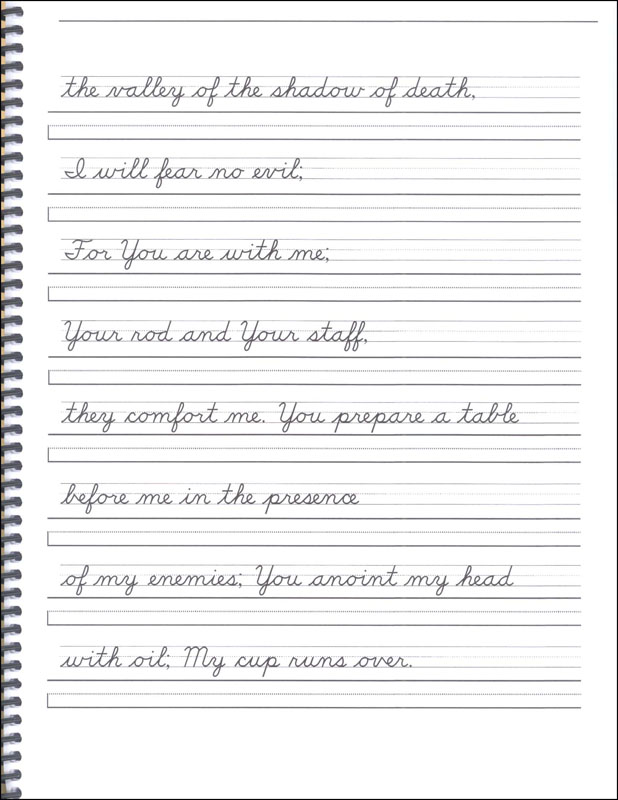 the valley of the shadow of death,
I will fear no evil;
For You are with me;
Your rod and Your staff,
they comfort me. You prepare a table
before me in the presence
of my enemies; You anoint my head
with oil; My cup runs over.